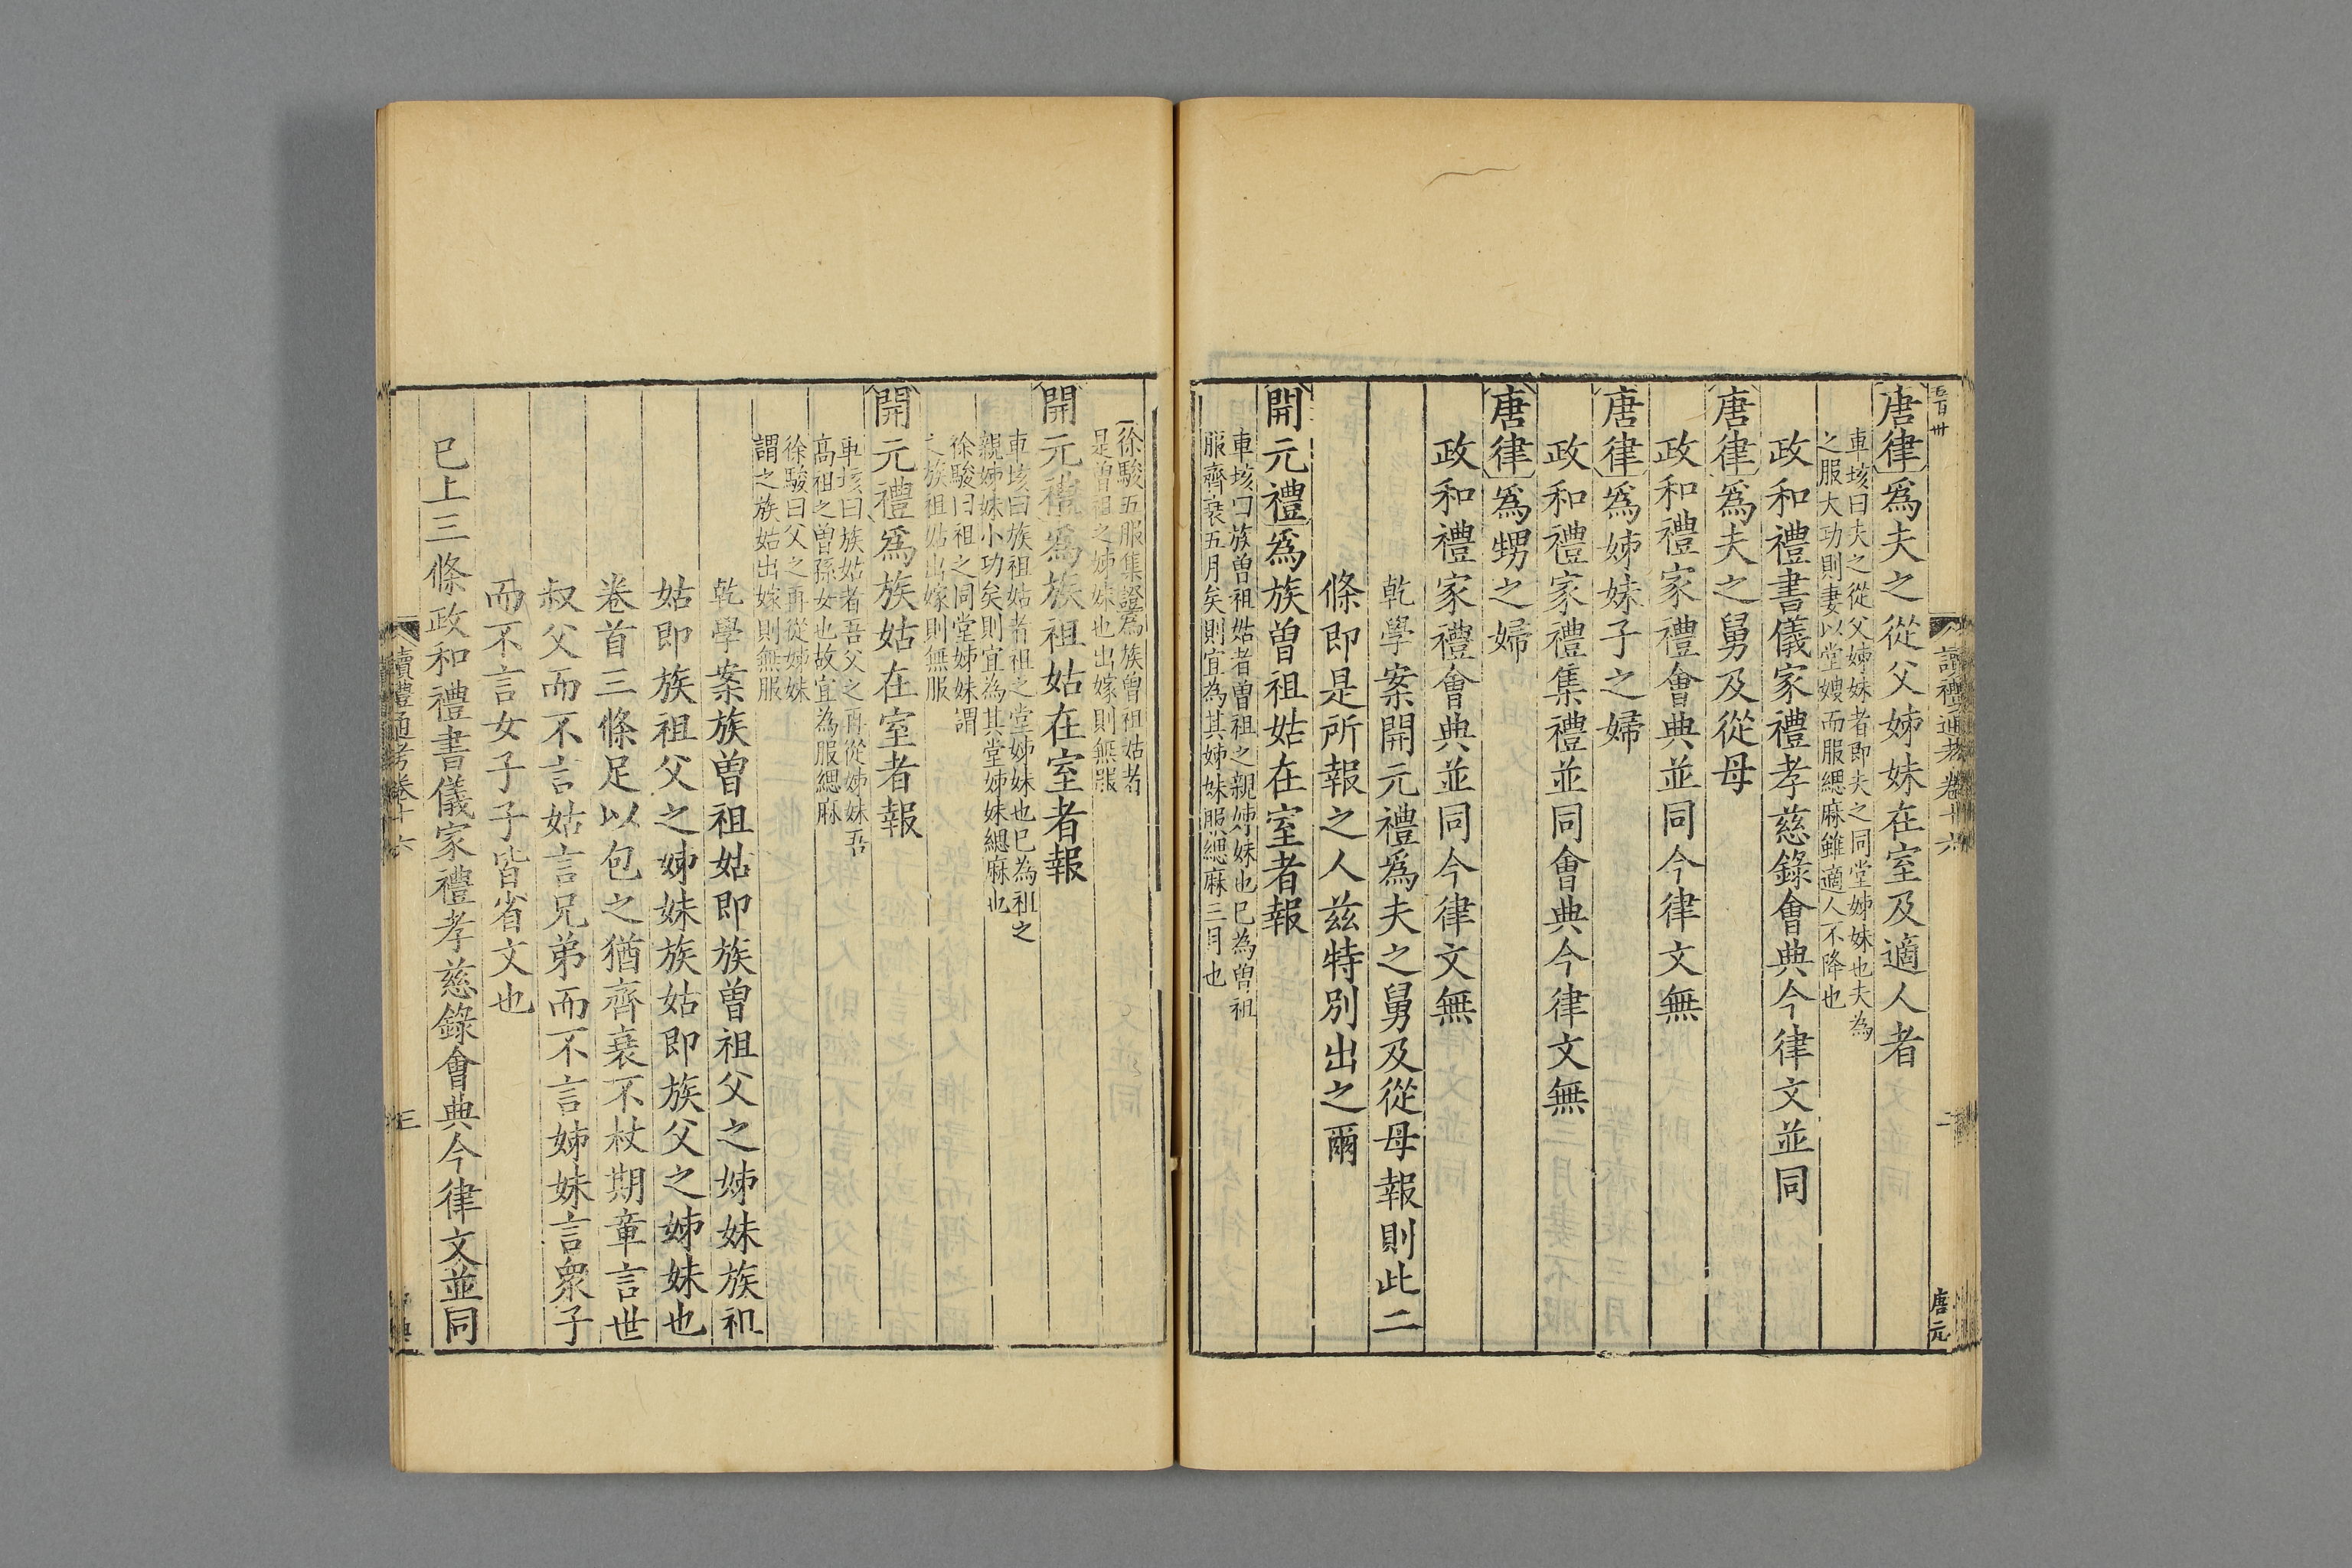 五百卅
讀禮通考卷十六
二
唐元
唐律爲夫之從父姊妹在室及適人者
車垓曰夫之從父姊妹者即夫之同堂姊妹也夫為
之服大功則妻以堂嫂而服緦麻雖適人不降也
政和禮書儀家禮孝慈錄會典今律文並同
唐律爲夫之舅及從母
政和禮家禮會典並同今律文無
唐律爲姊妹子之婦
政和禮家禮集禮並同會典今律文無
唐律爲甥之婦
政和禮家禮會典並同今律文無
乾學案開元禮爲夫之舅及從母報則此二
條即是所報之人茲特別出之爾
開元禮爲族曾祖姑在室者報
車垓曰族曾祖姑者曾祖之親姊妹也已為曾祖
服齊衰五月矣則宜為其姊妹服緦麻三月也
徐駿五服集證為族曾祖姑者
是曾祖之姊妹也出嫁則無服
開元禮爲族祖姑在室者報
車垓曰族祖姑者祖之堂姊妹也已為祖之
親姊妹小功矣則宜為其堂姊妹緦麻也
徐駿曰祖之同堂姊妹謂
之族祖姑出嫁則無服
開元禮爲族姑在室者報
車垓曰族姑者吾父之再從姊妹吾
高祖之曾孫女也故宜為服緦麻
徐駿曰父之再從姊妹
謂之族姑出嫁則無服
乾學案族曾祖姑即族曾祖父之姊妹族祖
姑即族祖父之姊妹族姑即族父之姊妹也
卷首三條足以包之猶齊衰不杖期章言世
叔父而不言姑言兄弟而不言姊妹言衆子
而不言女子子皆省文也
已上三條政和禮書儀家禮孝慈錄會典今律文並同
讀禮通考卷十六
三